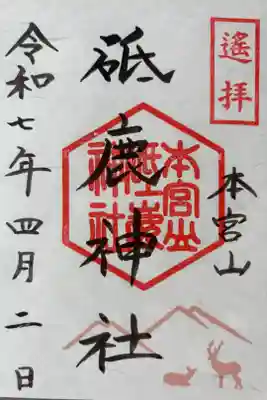 遙拝
本宮山
砥鹿神社
本宮山
砥鹿神社
令和七年四月二日